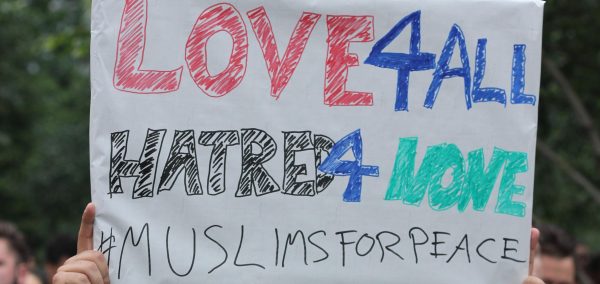 LOVE 4 ALL
HATRED 4 NONE
#MUSLIMSFORPEACE